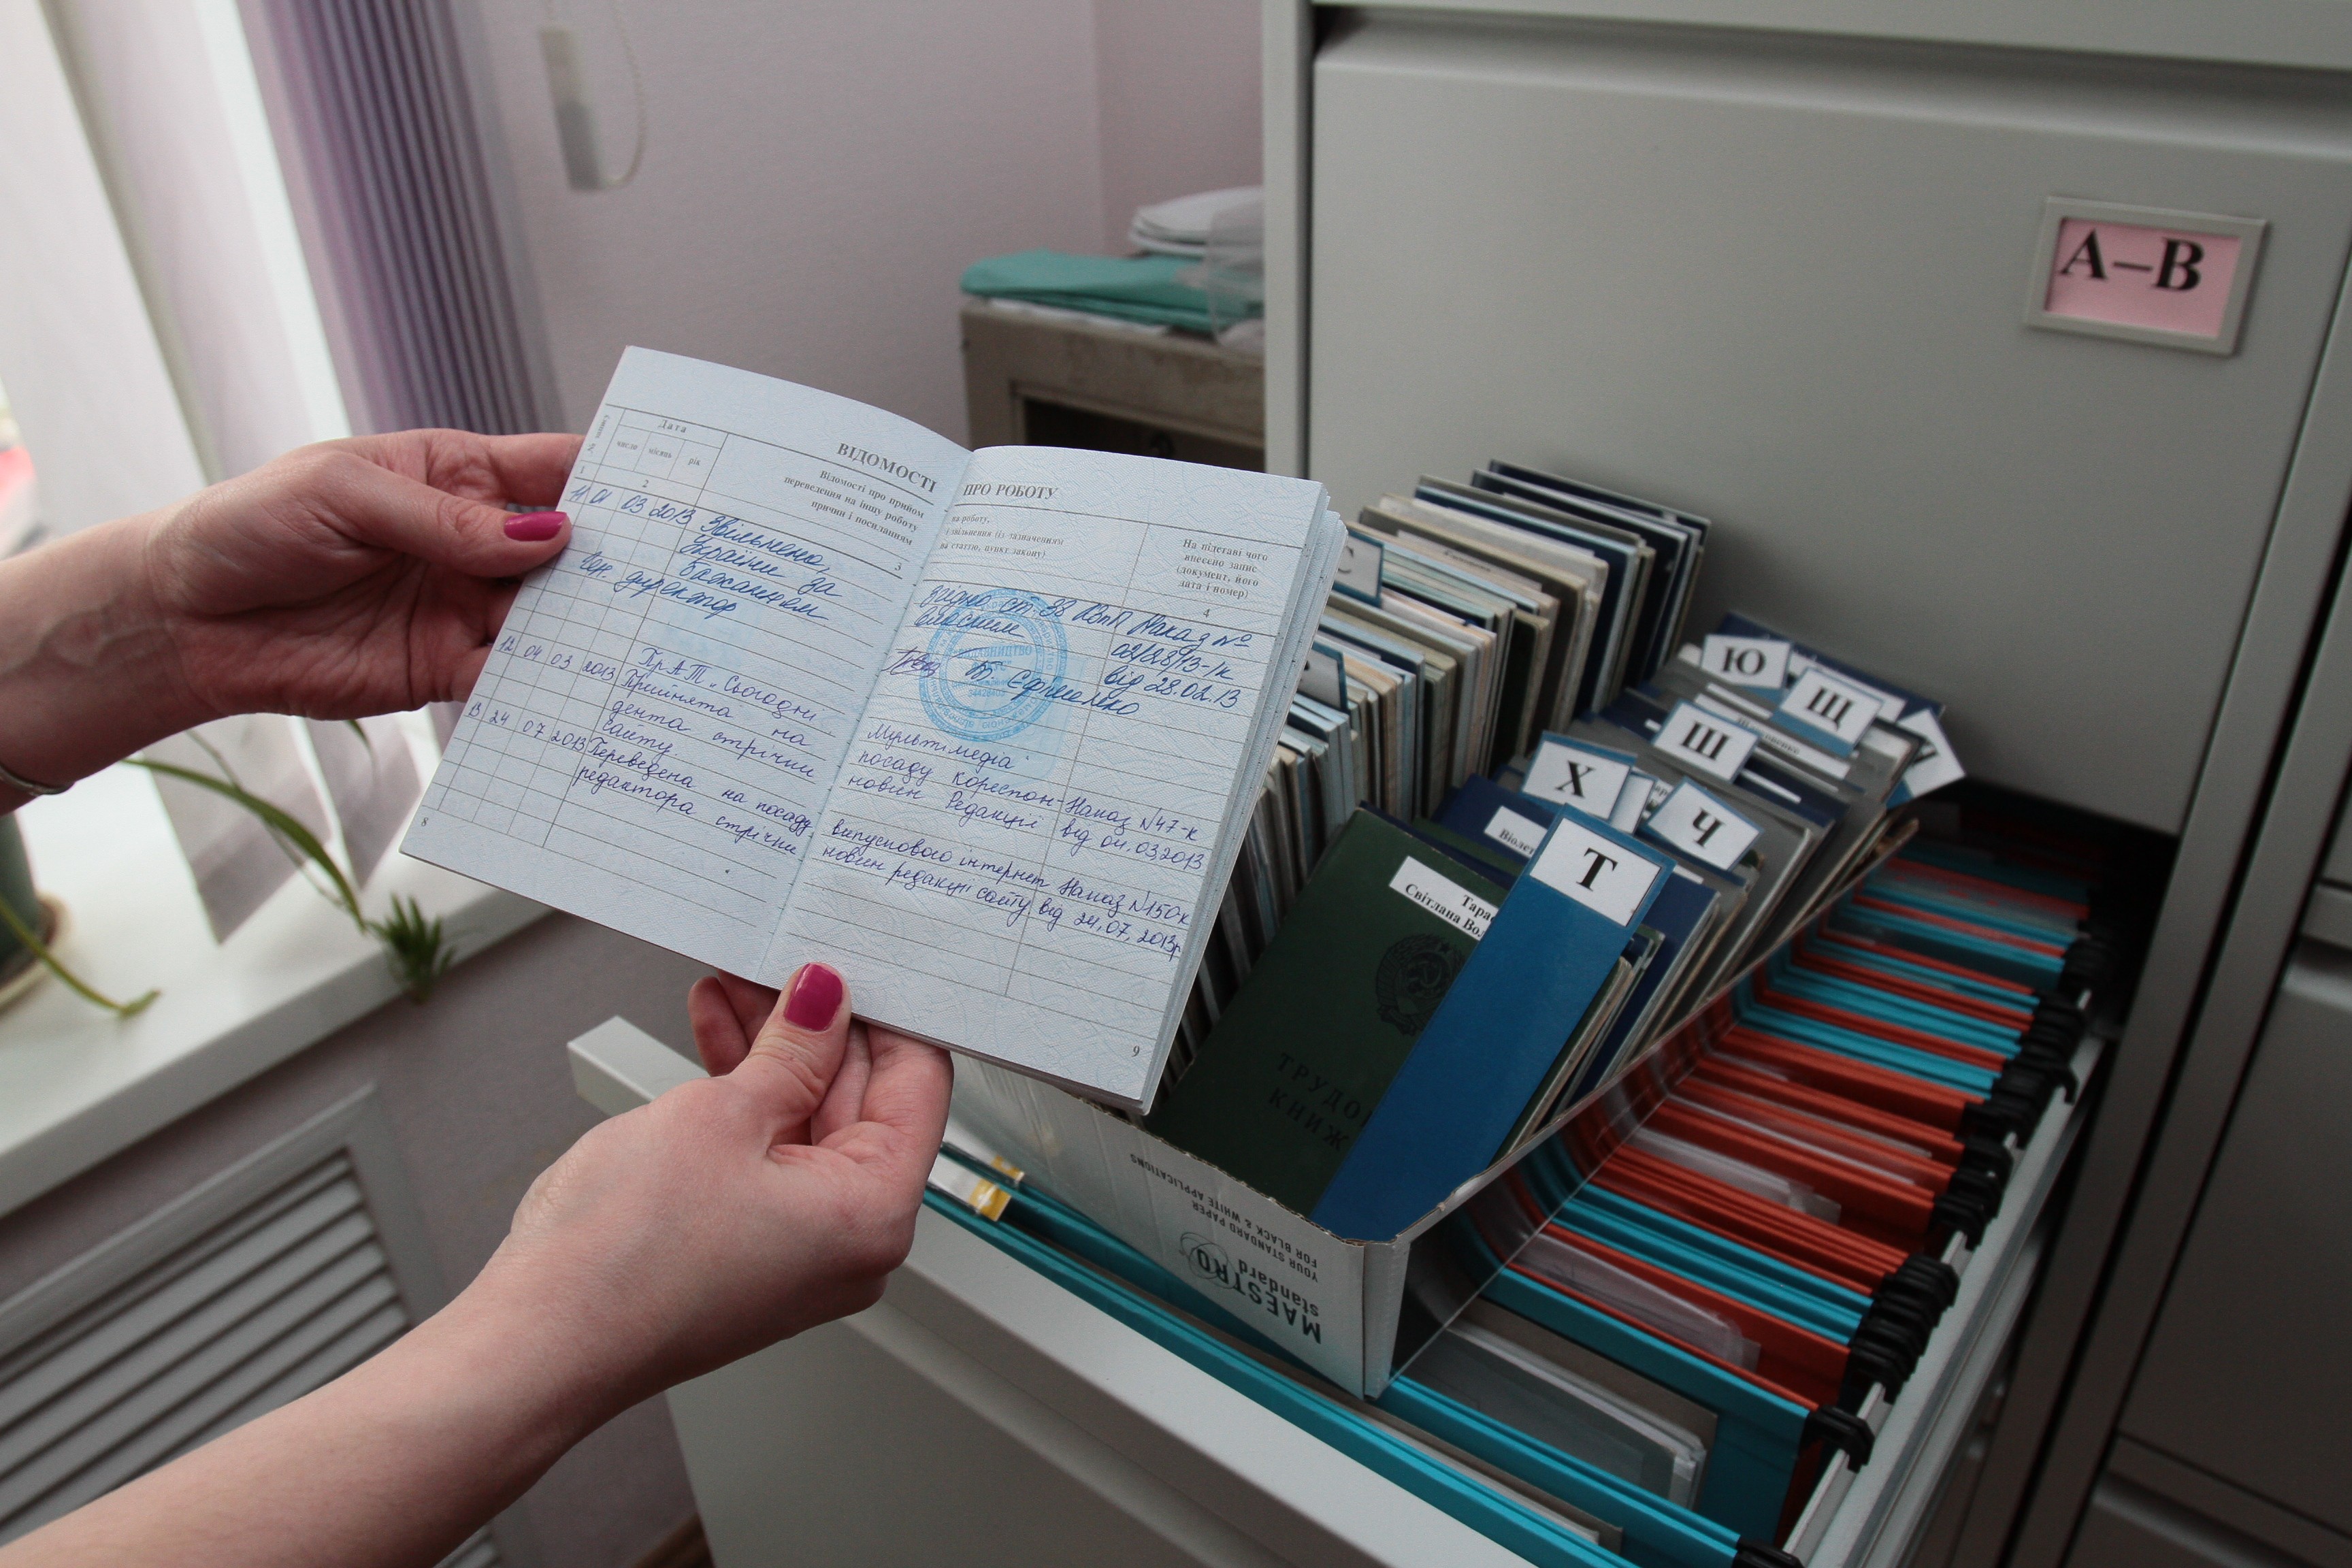 А–В
№ запису
Дата
число місяць рік
ВІДОМОСТІ
Відомості про прийом
переведення на іншу роботу
причин і посиланням
1 2 3
11 01 03 2013 Звільнена,
України за
бажанням
Ген. директор
12 04 03 2013 ПрАТ „Сьогодні
Прийнята на
дента стрічки
сайту.
13 24 07 2013 Переведена на посаду
редактора стрічки
8
ПРО РОБОТУ
на роботу,
звільнення (із зазначенням
на статтю, пункт закону)
На підставі чого
внесено запис
(документ, його
дата і номер)
4
згідно ст. 38 КЗпП Наказ №
власним 02/28/13-1к
від 28.02.13
Т. Єфименко
ВИДАВНИЦТВО
Мультимедіа"
посаду кореспон- Наказ №47-к
новин Редакції від 04.03.2013
випускового інтернет Наказ №150к
новин редакції сайту від 24.07.2013р
9
С
Ю
Щ
Ш
Х
Ч
Т
Віолет
Тарас
Світлана Вол
ТРУДО
КНИЖ
MAESTRO
standard
YOUR STANDARD PAPER
FOR BLACK & WHITE APPLICATIONS